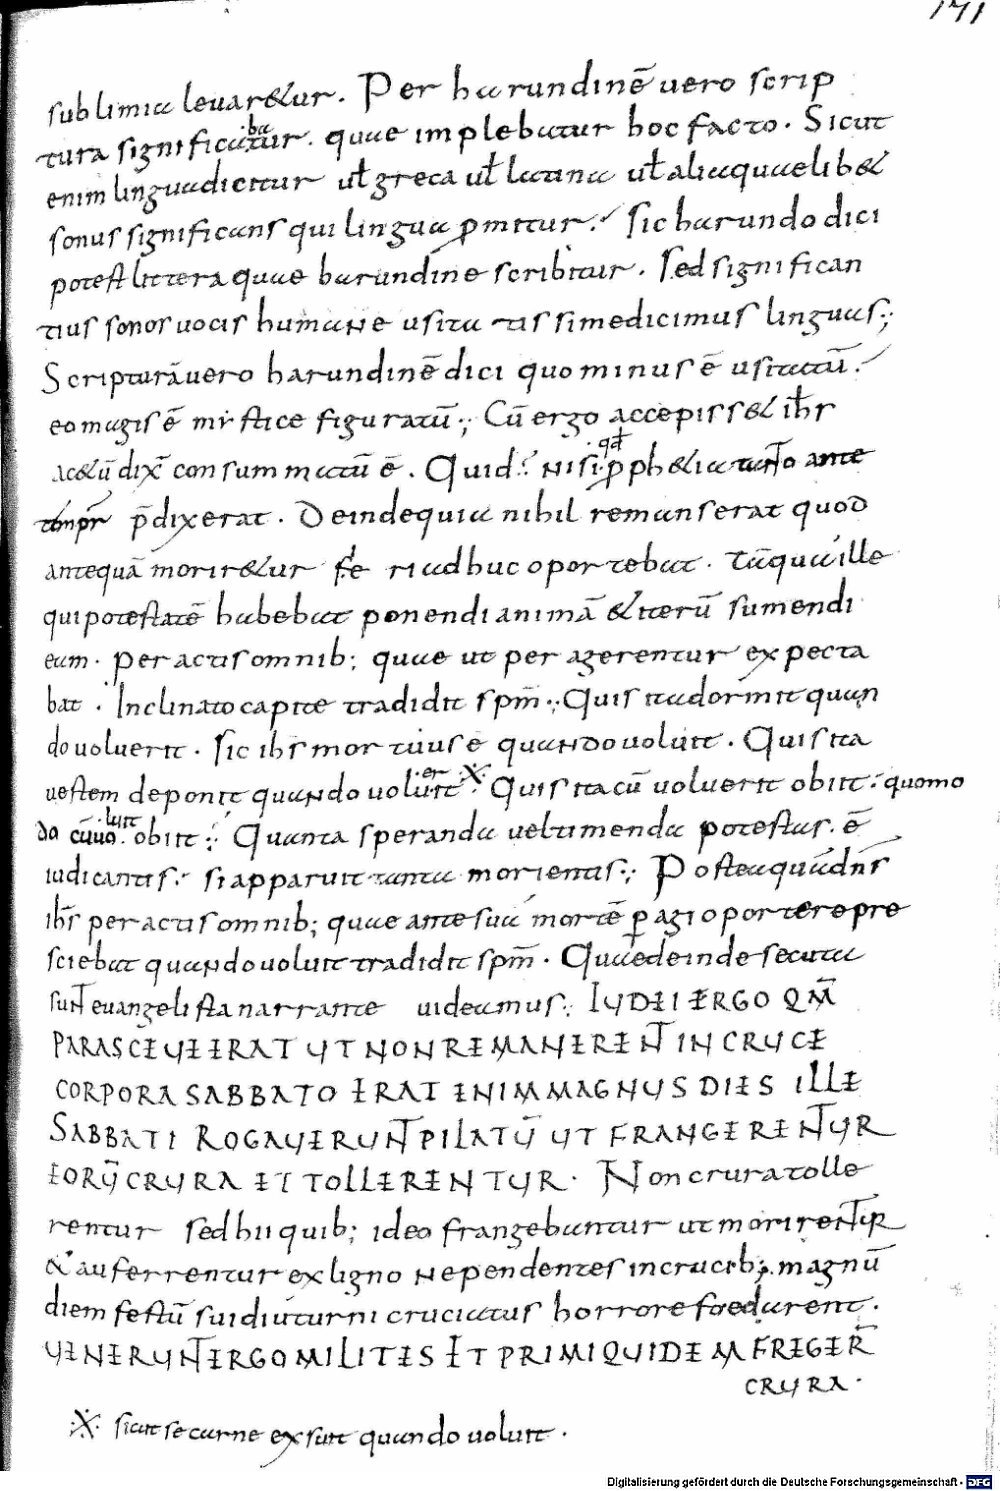 171
sublimia leuar&ur. Per harundinē uero scrip
tura significatur. quae implebatur hoc facto. Sicut
ba
enim lingua dicitur uł greca uł latina uł alia quaelib&
sonus significans qui lingua ꝓmitur. Sic harundo dici
potest littera quae harundine scribitur. Sed significan
tius sonos uocis humane usitatissime dicimus linguas;
Scripturā uero harundinē dici quo minus ē usitatū.
eo magis ē mystice figuratū; Cū ergo accepiss& ih̄s
ac&ū dix̄ consummatū ē. Quid nisi ꝓph&ia ante
qđ
p̄dixerat. Deinde quia nihil remanserat quod
antequā morir&ur fieri adhuc oportebat. Tāquā ille
qui potestatē habebat ponendi animā & iterū sumendi
eam. peractis omnib; quae ut peragerentur expecta
bat. Inclinato capite tradidit sp̄m; Quis ita dormit quan
do uoluerit. Sic ih̄s mortuus ē quando uoluit. Quis ita
uestem deponit quando uoluerit Quis ita cū uoluerit obiit. quomo
do cū uoluit obiit; Quanta speranda uel timenda potestas ē
iudicantis. si apparuit tanta morientis; Postea quā dn̄s
ih̄s peractis omnib; quae ante suā mortē peragi oportere pre
sciebat quando uoluit tradidit sp̄m. Quae deinde secuta
sunt euangelista narrante uideamus; IUDEI ERGO QM̄
PARASCEUE ERAT UT NON REMANERENT IN CRUCE
CORPORA SABBATO ERAT ENIM MAGNUS DIES ILLE
SABBATI ROGAUERUNT PILATŪ UT FRANGERENTUR
EORŪ CRURA ET TOLLERENTUR. Non crura tolle
rentur sed hii quib; ideo frangebantur ut morirentur
& auferrentur ex ligno ne pendentes in crucib; magnū
diem festū sui diuturni cruciatus horrore foedarent.
UENERUNT ERGO MILITES ET PRIMI QUIDEM FREGER̄
CRURA.
sicut se carne exsuit quando uoluit.
Digitalisierung gefördert durch die Deutsche Forschungsgemeinschaft - DFG